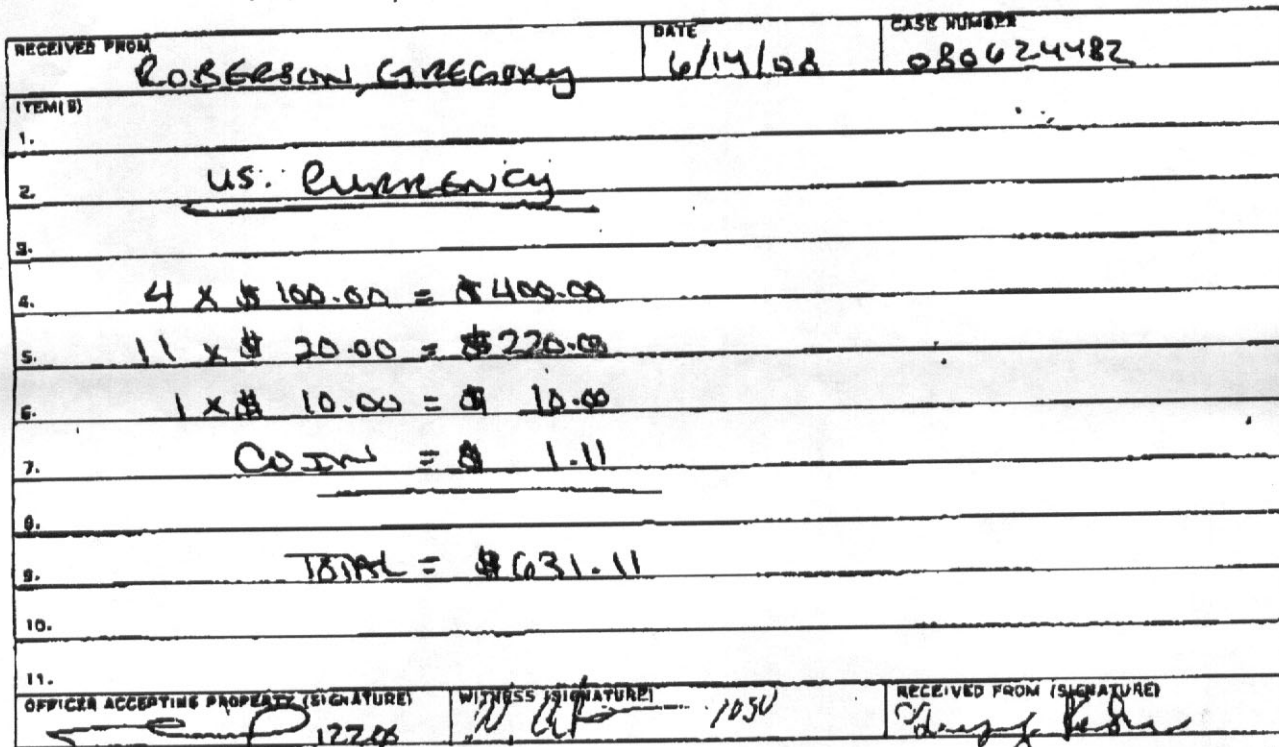 RECEIVED FROM DATE CASE NUMBER
ROBERSON, GREGORY 6/14/08 080624482
ITEM(S)
1.
2. US. CURRENCY
3.
4. 4 X $ 100.00 = $400.00
5. 11 X $ 20.00 = $220.00
6. 1 X $ 10.00 = $ 10.00
7. COIN = $ 1.11
8.
9. TOTAL = $631.11
10.
11.
OFFICER ACCEPTING PROPERTY (SIGNATURE) WITNESS (SIGNATURE) RECEIVED FROM (SIGNATURE)